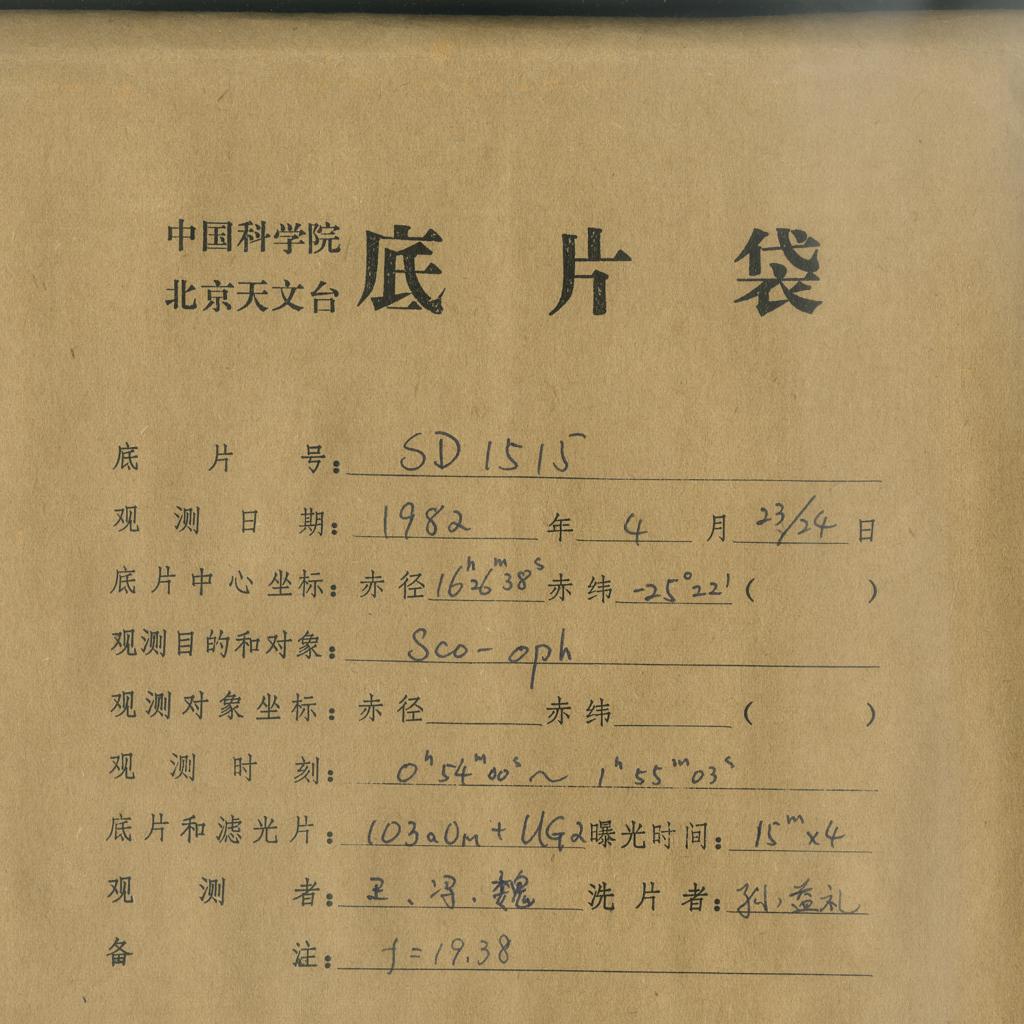 中国科学院
北京天文台
底片袋
底片号：SD 1515
观测日期：1982年4月23/24日
底片中心坐标：赤径16h26m38s赤纬-25°22′（ ）
观测目的和对象：Sco-oph
观测对象坐标：赤径 赤纬 （ ）
观测时刻：0h54m00s～1h55m03s
底片和滤光片：103aOm+UG2曝光时间：15m×4
观测者：王、冯、魏 洗片者：孙、益礼
备注：f=19.38